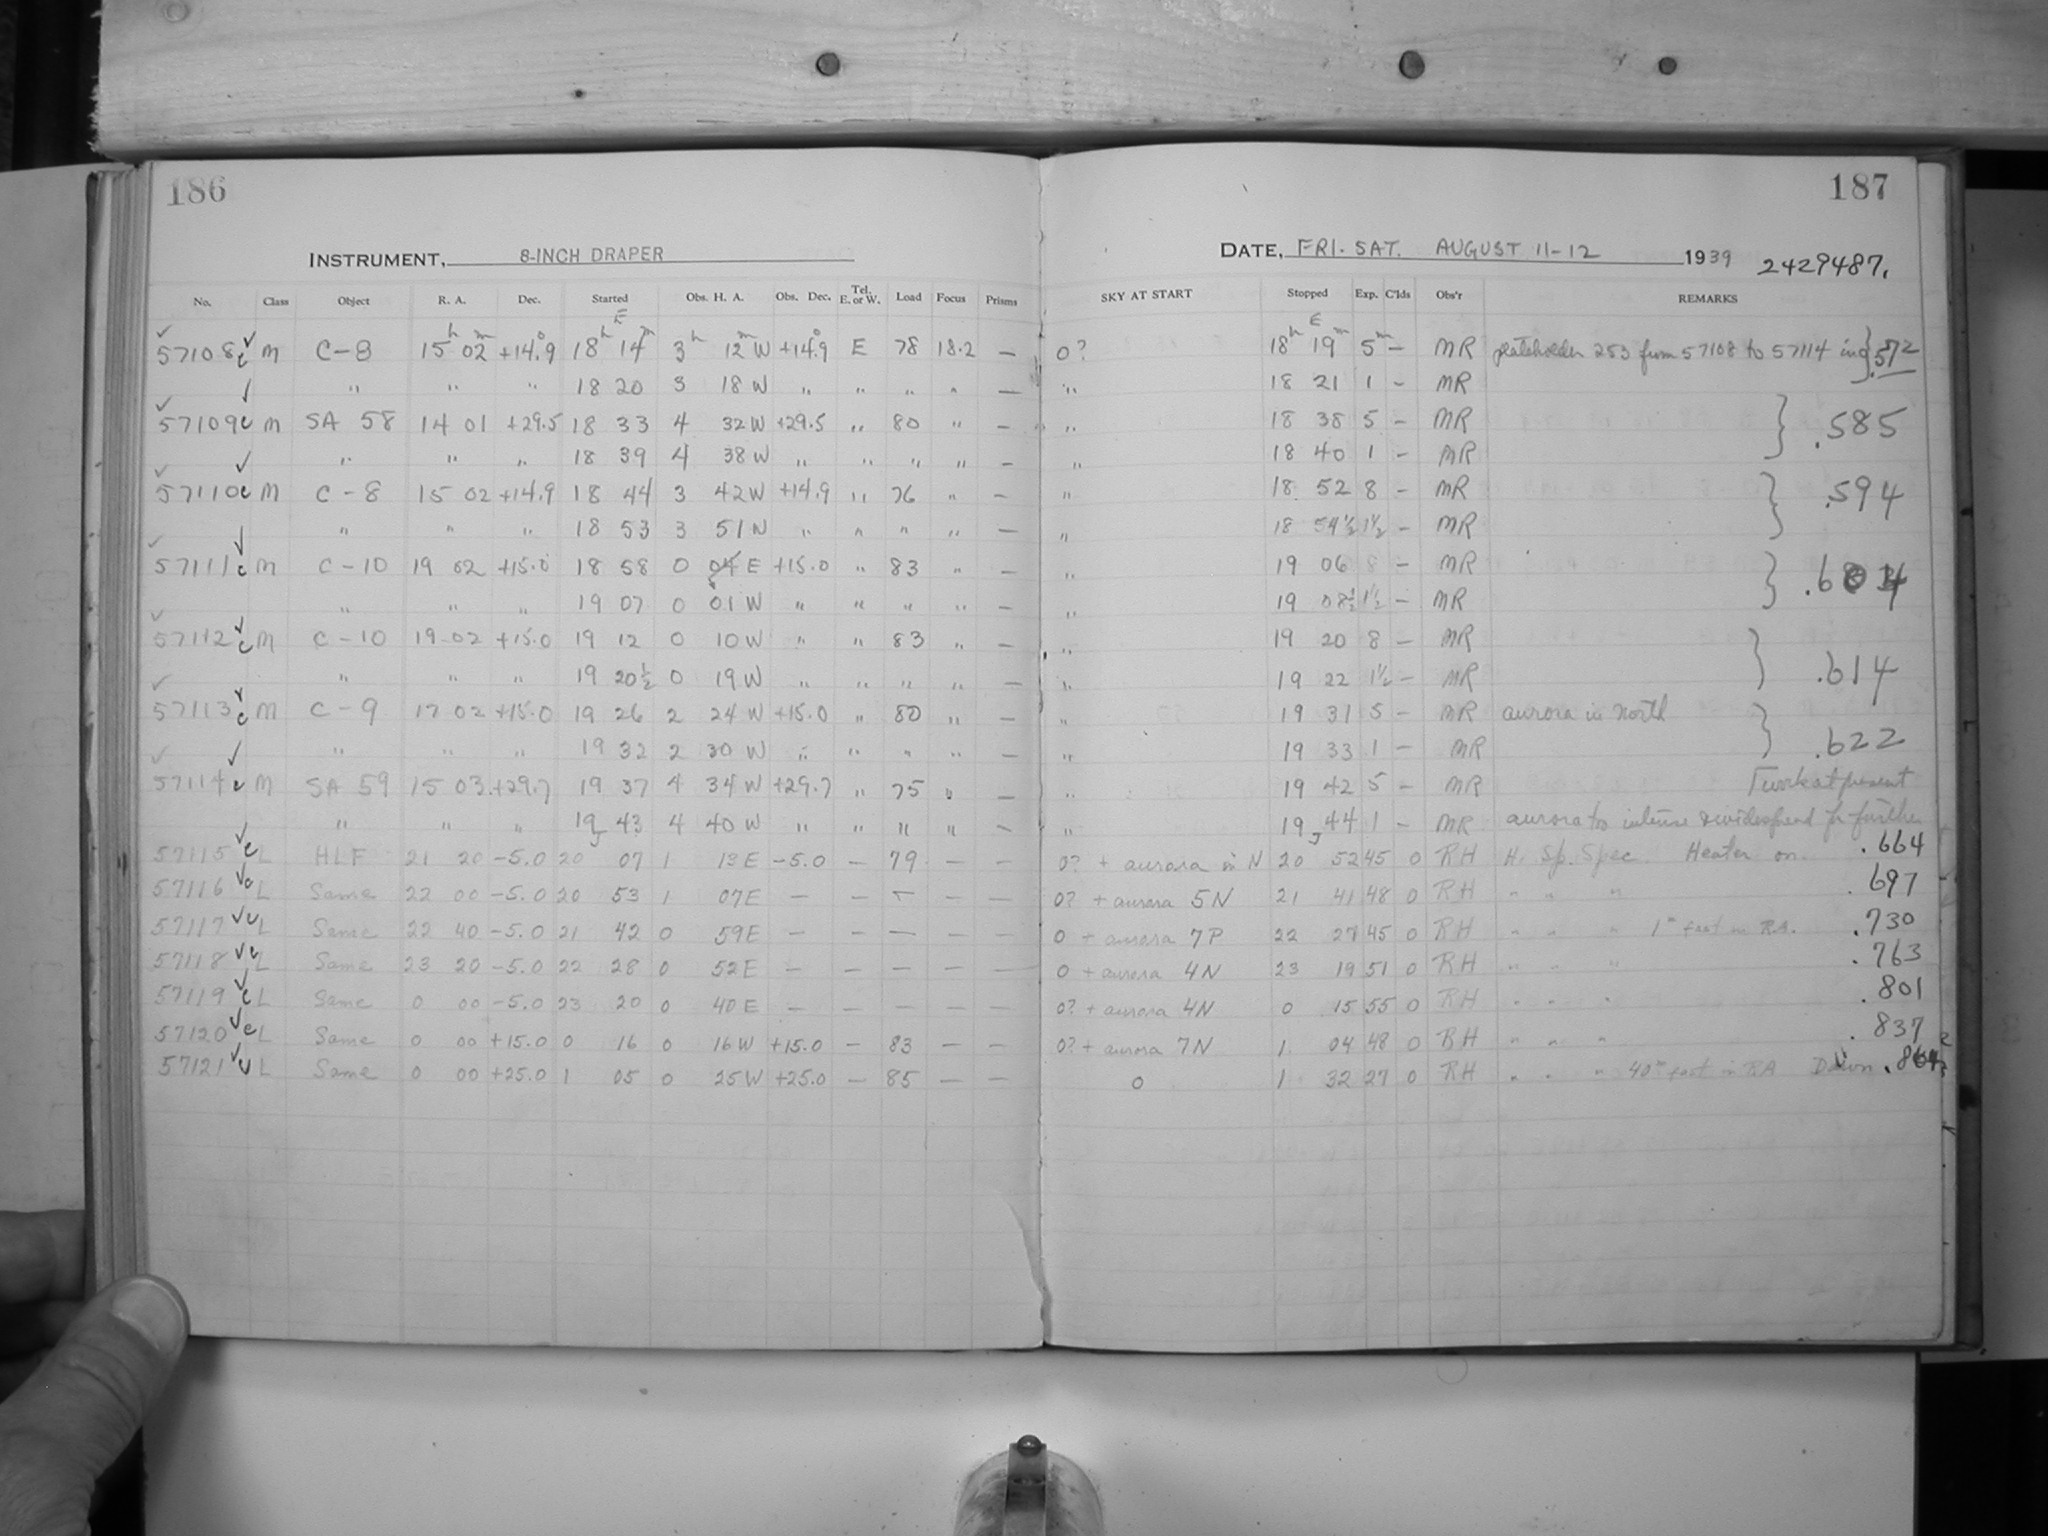 186
187
INSTRUMENT, 8-INCH DRAPER
DATE, FRI. SAT. AUGUST 11-12 1939 2429487.
No. Class Object R. A. Dec. Started Obs. H. A. Obs. Dec. Tel. E. or W. Load Focus Prisms SKY AT START Stopped Exp. C'lds Obs'r REMARKS
57108 c M C-8 15h 02m +14.9° 18h 14m E 3h 12m W +14.9° E 78 18.2 — 0? 18h 19m E 5m — MR plateholder 253 from 57108 to 57114 inc } .572
" " " 18 20 3 18 W " " " " — " 18 21 1 — MR
57109 c M SA 58 14 01 +29.5 18 33 4 32 W +29.5 " 80 " — " 18 38 5 — MR } .585
" " " 18 39 4 38 W " " " " — " 18 40 1 — MR
57110 c M C-8 15 02 +14.9 18 44 3 42 W +14.9 " 76 " — " 18 52 8 — MR } .594
" " " 18 53 3 51 W " " " " — " 18 54½ 1½ — MR
57111 c M C-10 19 02 +15.0 18 58 0 04 E +15.0 " 83 " — " 19 06 8 — MR } .604
" " " 19 07 0 01 W " " " " — " 19 08½ 1½ — MR
57112 c M C-10 19 02 +15.0 19 12 0 10 W " " 83 " — " 19 20 8 — MR } .614
" " " 19 20½ 0 19 W " " " " — " 19 22 1½ — MR
57113 c M C-9 17 02 +15.0 19 26 2 24 W +15.0 " 80 " — " 19 31 5 — MR aurora in north } .622
" " " 19 32 2 30 W " " " " — " 19 33 1 — MR
57114 c M SA 59 15 03 +29.7 19 37 4 34 W +29.7 " 75 " — " 19 42 5 — MR [work at present
" " " 19 43 4 40 W " " " " — " 19 44 1 — MR aurora too intense & widespread for further
57115 c L HLF 21 20 -5.0 20 07 1 13 E -5.0 — 79 — — 0? + aurora in N 20 52 45 0 RH H. Sp. Spec. Heater on. .664
57116 c L Same 22 00 -5.0 20 53 1 07 E — — — — — 0? + aurora 5 N 21 41 48 0 RH " " " .697
57117 c L Same 22 40 -5.0 21 42 0 59 E — — — — — 0 + aurora 7 P 22 27 45 0 RH " " " 1m fast in RA. .730
57118 c L Same 23 20 -5.0 22 28 0 52 E — — — — — 0 + aurora 4 N 23 19 51 0 RH " " " .763
57119 c L Same 0 00 -5.0 23 20 0 40 E — — — — — 0? + aurora 4 N 0 15 55 0 RH " " " .801
57120 c L Same 0 00 +15.0 0 16 0 16 W +15.0 — 83 — — 0? + aurora 7 N 1 04 48 0 RH " " " .837
57121 c L Same 0 00 +25.0 1 05 0 25 W +25.0 — 85 — — 0 1 32 27 0 RH " " " 40m fast in RA Dawn